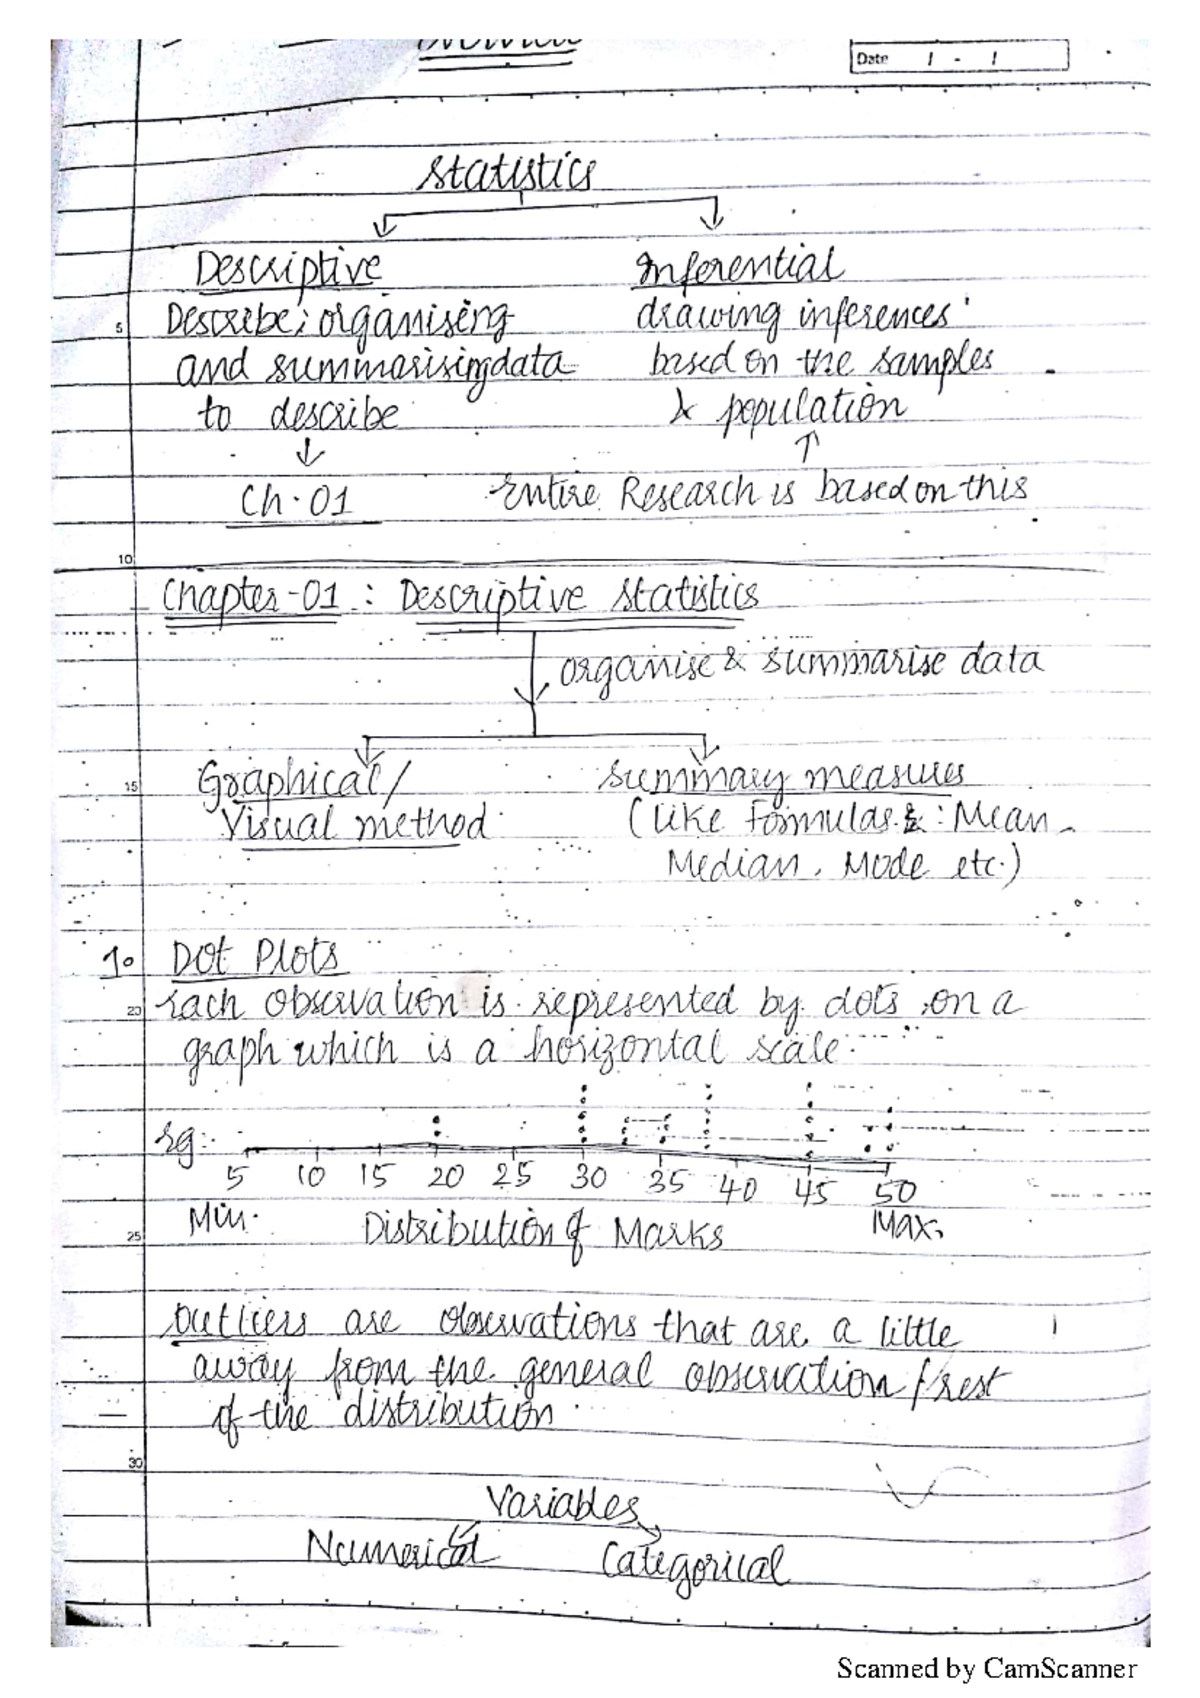 Date 1 - 1
Statistics
Descriptive Inferential
Describe; organising drawing inferences
5
and summarising data based on the samples
to describe & population
Ch. 01 Entire Research is based on this
10
Chapter-01 : Descriptive Statistics
organise & summarise data
15
Graphical/ Summary measures
Visual method (like Formulas & : Mean,
Median, Mode etc.)
1. Dot Plots
20 Each observation is represented by dots on a
graph which is a horizontal scale.
Eg:-
5 10 15 20 25 30 35 40 45 50
Min. Distribution of Marks Max.
25
Outliers are observations that are a little
away from the general observation / rest
of the distribution
30
Variables
Numerical Categorical
Scanned by CamScanner